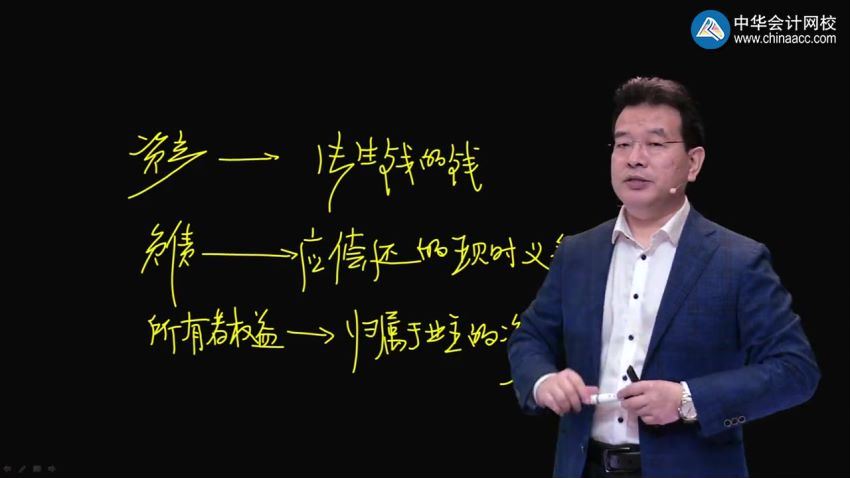 中华会计网校
www.chinaacc.com
资产 → 能生钱的钱
负债 → 应偿还的现时义
所有者权益 → 归属于业主的